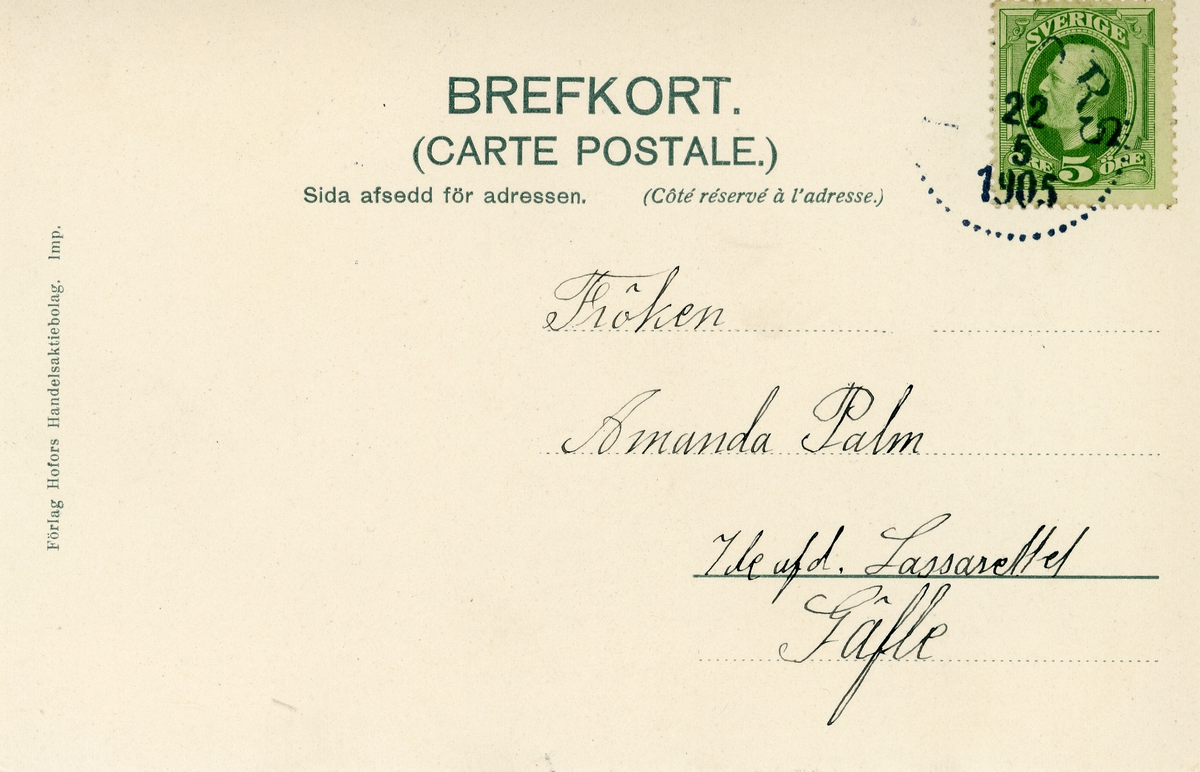 SVERIGE
5 ÖRE
22
5
1905
BREFKORT.
(CARTE POSTALE.)
Sida afsedd för adressen. (Côté réservé à l'adresse.)
Fröken
Amanda Palm
afd. Lassarettet
Gäfle
Förlag Hofors Handelsaktiebolag. Imp.